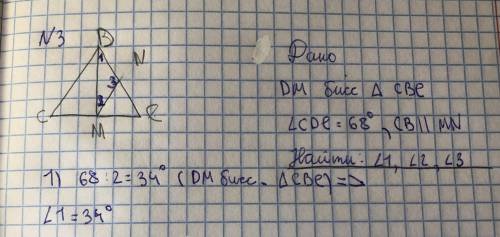 N3
D
1
N
3
2
C
M
E
Дано
DM бисс Δ CDE
∠CDE = 68°, CD || MN
Найти: ∠1, ∠2, ∠3
1) 68 : 2 = 34° (DM бисс. ΔCDE) =>
∠1 = 34°